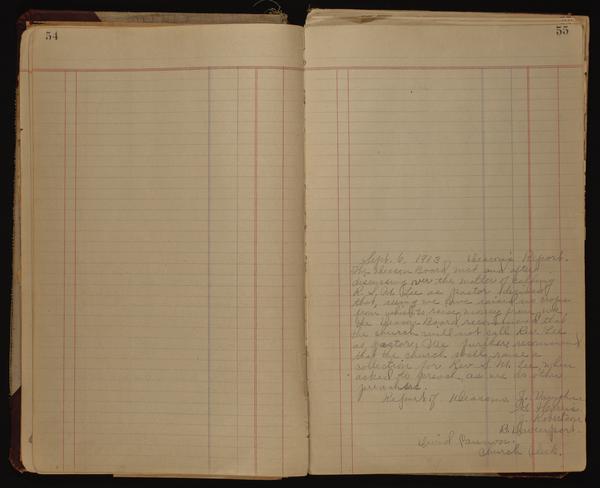 54
55
Sept. 6, 1913. Deacon's Report.
The Deacon Board, met and after
discussing over the matter of calling
R. S. M. Lee as pastor
that, seeing we have raised no crops
from which to raise money from, we
the Deacon Board, recommend that
the church will not call Rev. Lee
as pastor, We further recommend
that the church still raise a
collection for Rev. S. M. Lee when
asked to preach, as we do other
preachers.
Report of Deacons J.
Harris
J. Robertson
R. Davenport.
David Cannon.
Church Clerk.